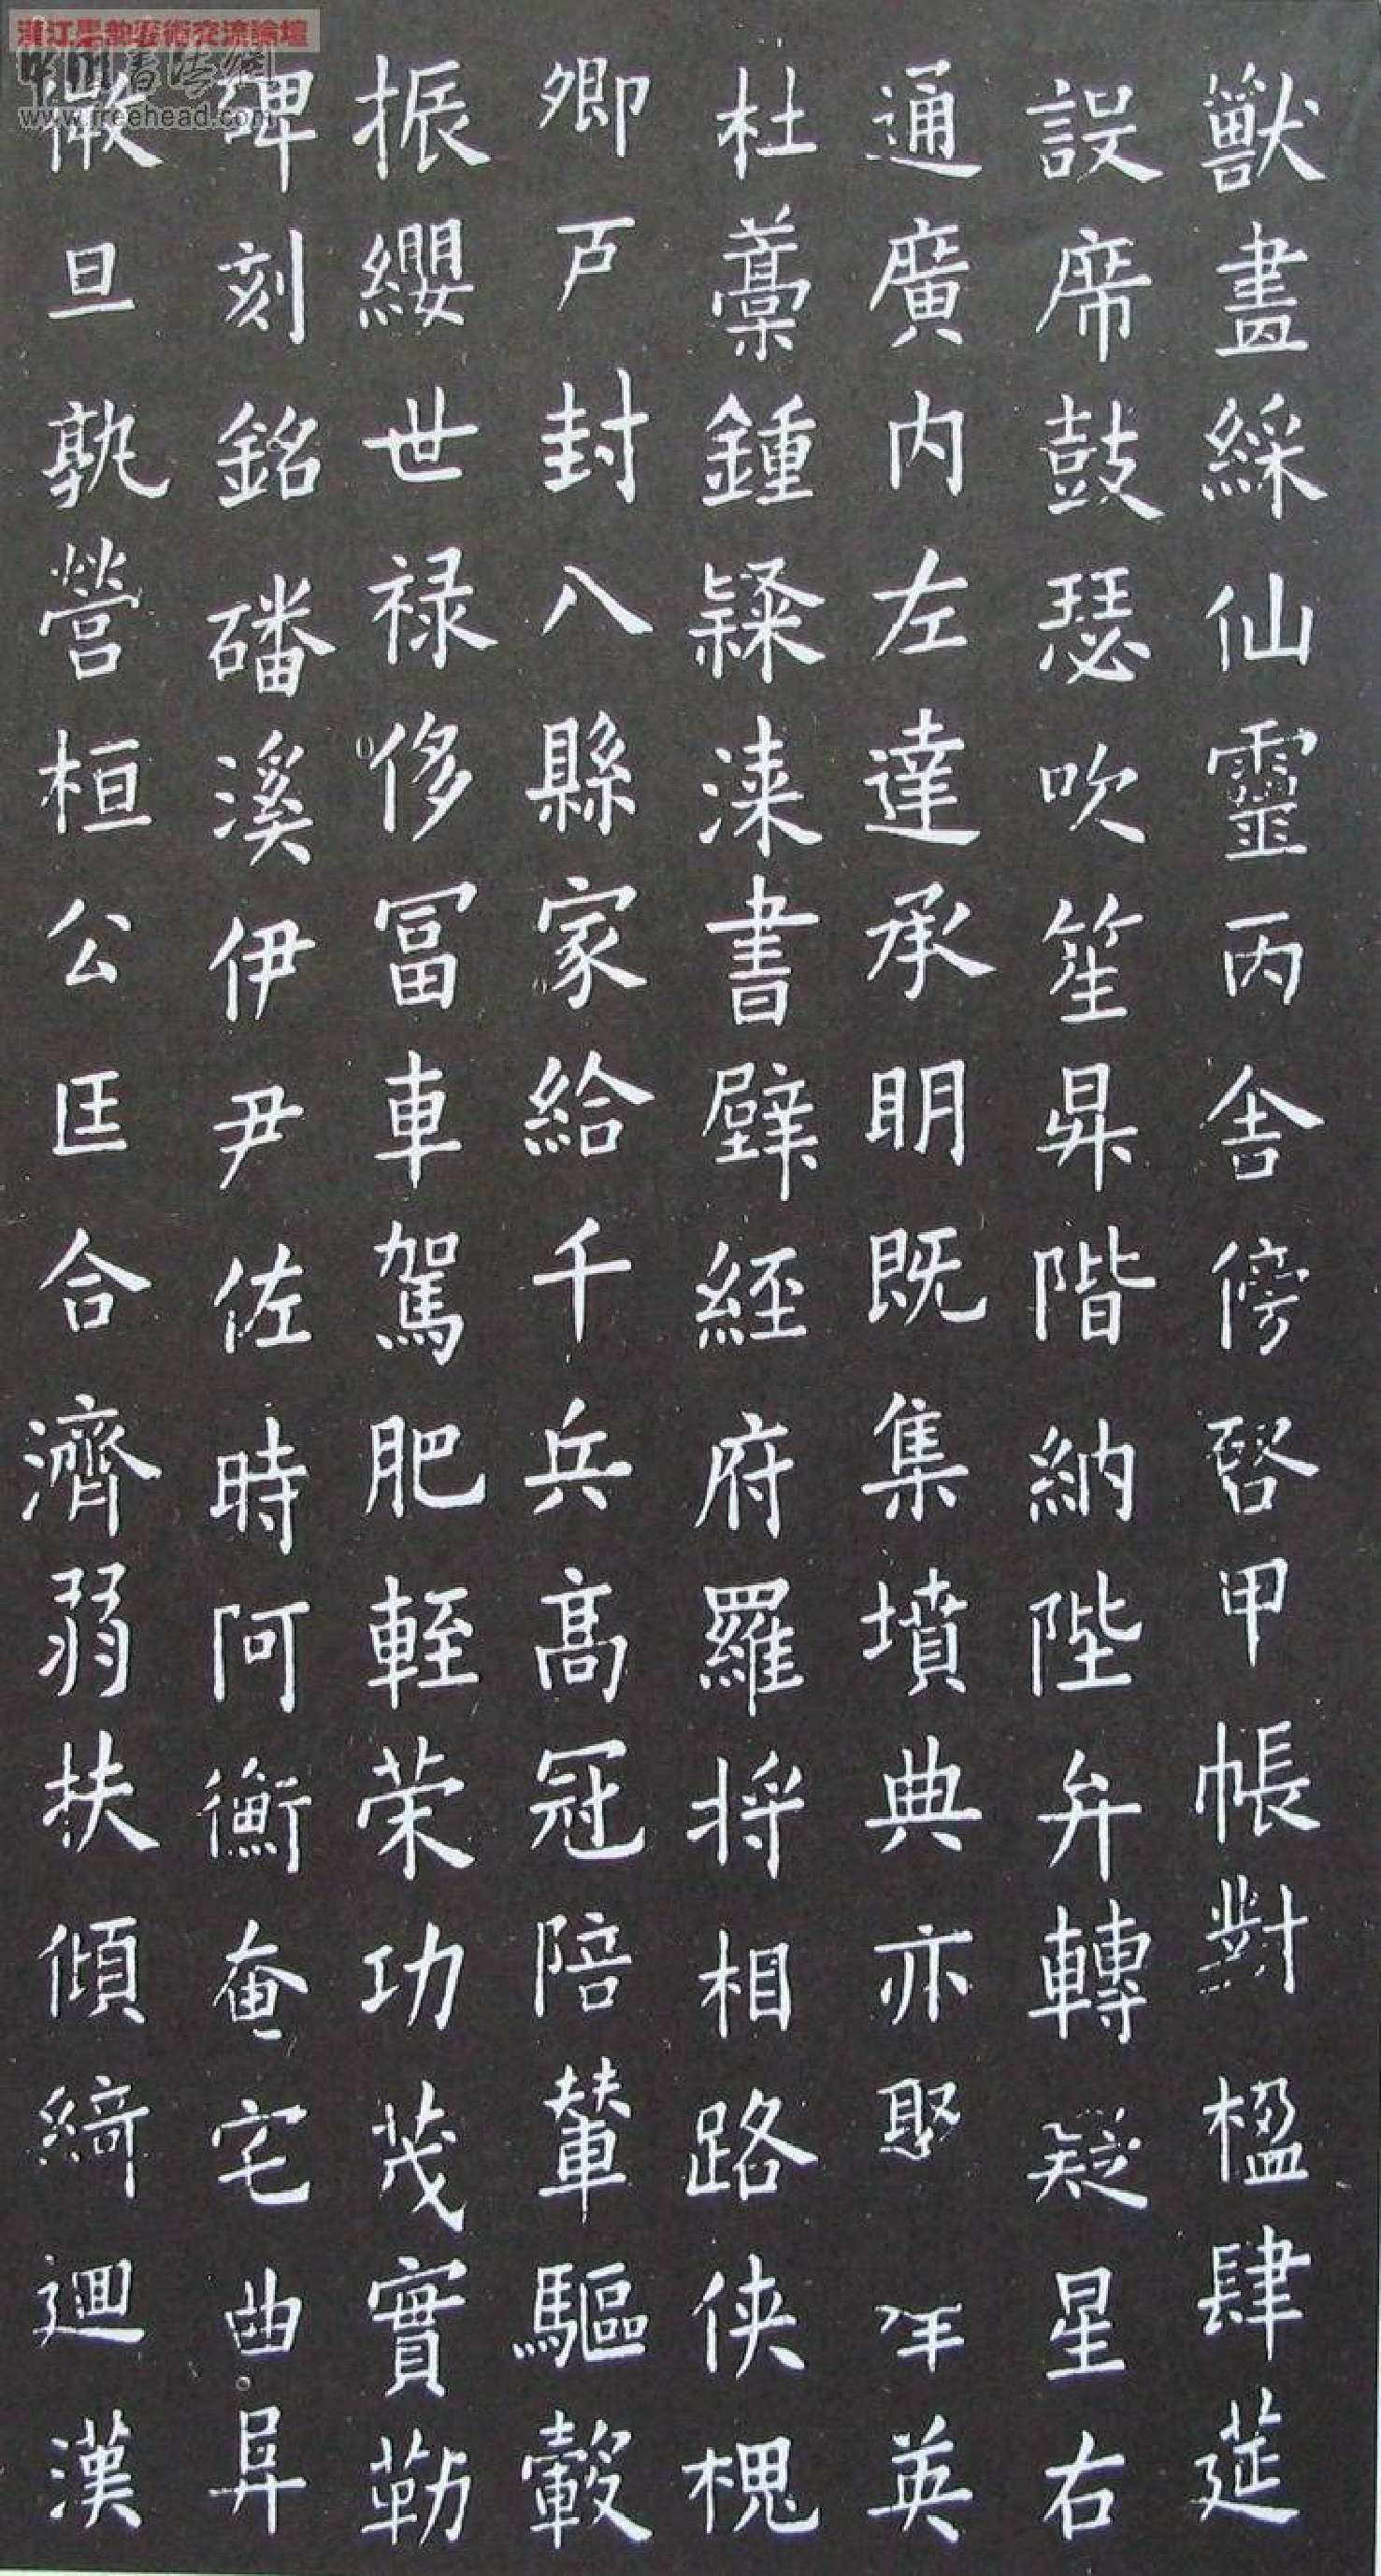 獸畫綵仙靈丙舍傍啓甲帳對楹肆莚
設席鼓瑟吹笙昇階納陛弁轉疑星右
通廣内左達承明既集墳典亦聚群英
杜藁鍾隸漆書壁経府羅将相路俠槐
卿户封八縣家給千兵髙冠陪輦驅轂
振纓世禄侈冨車駕肥軽荣功茂實勒
碑刻銘磻溪伊尹佐時阿衡奄宅曲阜
微旦孰營桓公匡合濟弱扶傾綺迴漢
中国書法網
www.freehead.com